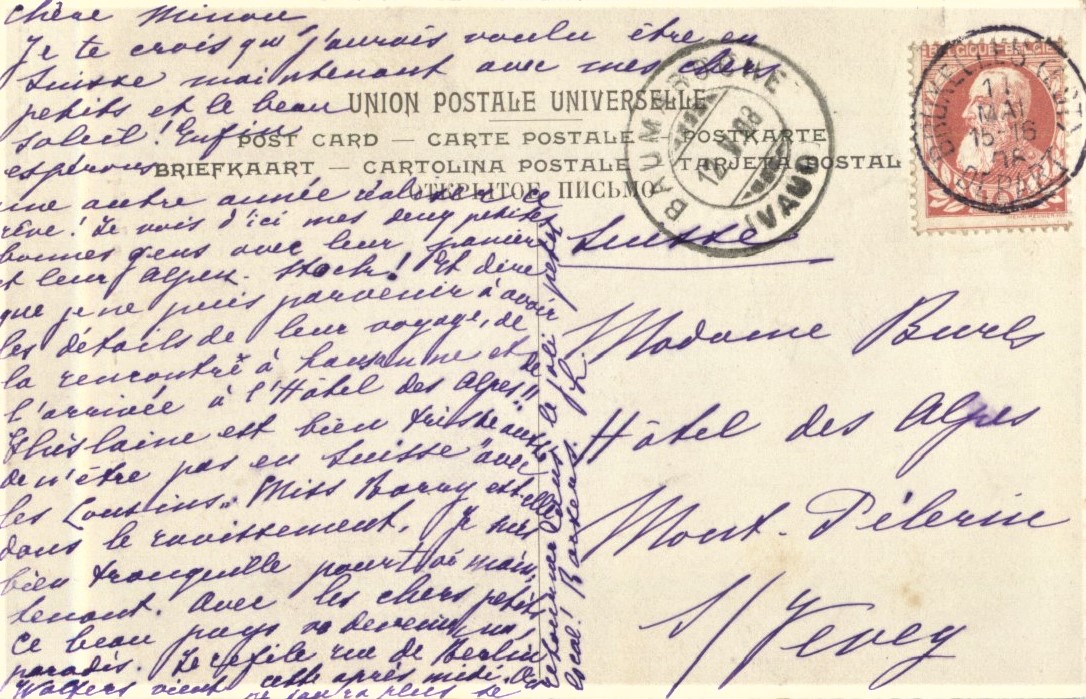 Chère Minou
Je te crois que j'aurais voulu être en
Suisse maintenant avec mes chers
petits et le beau
soleil! Enfin
espérons
une autre année réaliser ce
rêve! Je vois d'ici mes deux petites
bonnes gens avec leur panier
et leur Alpen-Stock! Et dire
que je ne puis parvenir à avoir
les détails de leur voyage, de
la rencontre à Lausanne et de
l'arrivée à l'Hôtel des Alpes!!
Ghislaine est bien triste aussi
de n'être pas en Suisse "avec
les Cousins". Miss est elle
dans le ravissement. Je suis
bien tranquille pour toi main
tenant. Avec les chers petits
ce beau pays va devenir un
paradis. Je file rue de Berlin
vient cette après midi.
ne saura plus se
retourner dans le joli petit
local! Baisers.
UNION POSTALE UNIVERSELLE
POST CARD — CARTE POSTALE — POSTKARTE
BRIEFKAART — CARTOLINA POSTALE — TARJETA POSTAL
ОТКРЫТОЕ ПИСЬМО
BAUMAROCHE
13 V 08
(VAUD)
BELGIQUE-BELGIË
BRUXELLES
11
MAI
15-16
DÉPART
Suisse
Madame Burls
Hôtel des Alpes
Mont-Pélerin
s/ Vevey